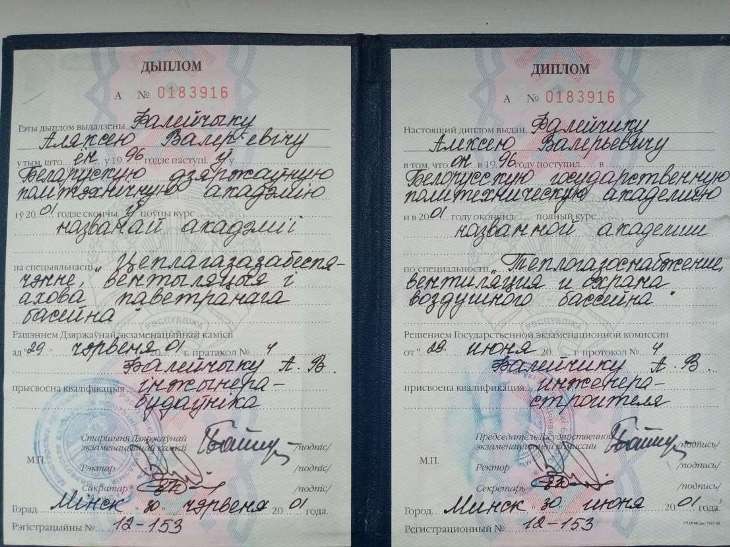 ДЫПЛОМ
А № 0183916
Гэты дыплом выдадзены Балейчыку
Аляксею Валер'евічу
у тым, што ён у 1996 годзе паступіў у
Беларускую дзяржаўную
політэхнічную акадэмію
і ў 2001 годзе скончыў поўны курс
названай акадэміі
па спецыяльнасці „Цеплагазазабеспя-
чэнне, вентыляцыя і
ахова паветранага
басейна"
Рашэннем Дзяржаўнай экзаменацыйнай камісіі
ад "29" чэрвеня 2001 г. пратакол № 4
Балейчыку А. В.
прысвоена кваліфікацыя інжынера-
будаўніка
Старшыня Дзяржаўнай
экзаменацыйнай камісіі /подпіс/
М.П.
Рэктар /подпіс/
Сакратар /подпіс/
Горад Мінск 30 чэрвеня 2001 года.
Рэгістрацыйны № 12-153
ДИПЛОМ
А № 0183916
Настоящий диплом выдан Балейчику
Алексею Валерьевичу
в том, что он в 1996 году поступил в
Белорусскую государственную
политехническую академию
и в 2001 году окончил полный курс
названной академии
по специальности „Теплогазоснабжение,
вентиляция и охрана
воздушного бассейна"
Решением Государственной экзаменационной комиссии
от "29" июня 2001 г. протокол № 4
Балейчику А. В.
присвоена квалификация инженера-
строителя
Председатель Государственной
экзаменационной комиссии /подпись/
М.П.
Ректор /подпись/
Секретарь /подпись/
Город Минск 30 июня 2001 года.
Регистрационный № 12-153